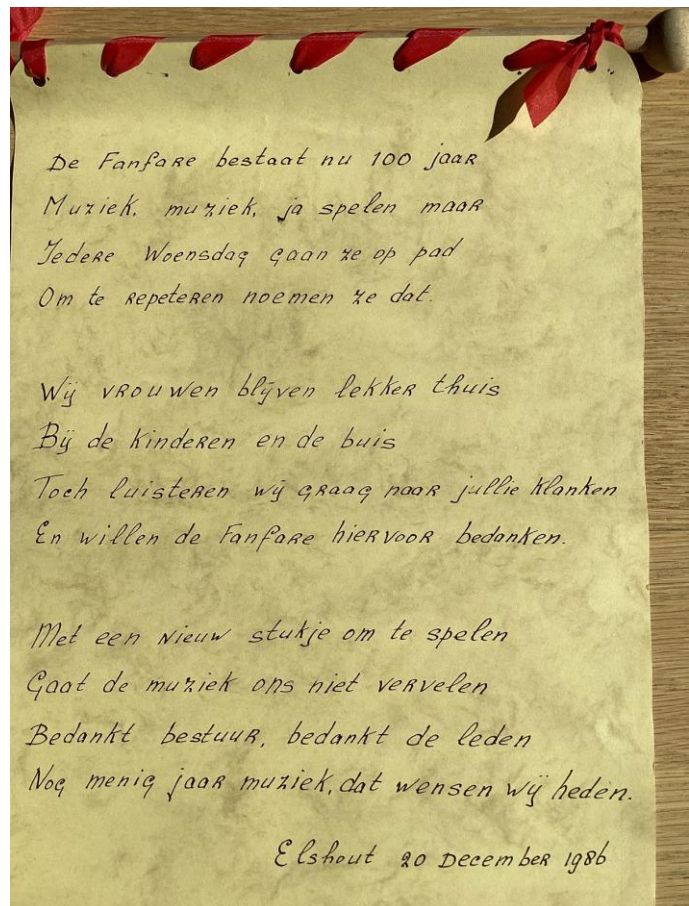 De Fanfare bestaat nu 100 jaar
Muziek, muziek, ja spelen maar
Iedere Woensdag gaan ze op pad
Om te repeteren noemen ze dat.
Wij vrouwen blijven lekker thuis
Bij de kinderen en de buis
Toch luisteren wij graag naar jullie klanken
En willen de Fanfare hiervoor bedanken.
Met een nieuw stukje om te spelen
Gaat de muziek ons niet vervelen
Bedankt bestuur, bedankt de leden
Nog menig jaar muziek, dat wensen wij heden.
Elshout 20 December 1986